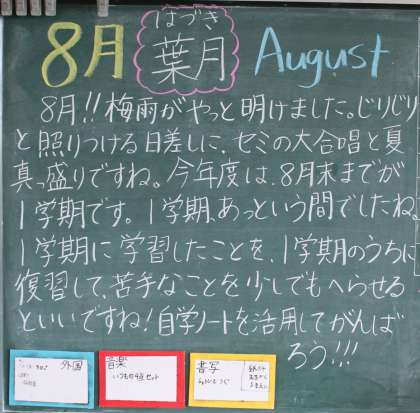 はづき
8月 葉月 August
8月!!梅雨がやっと明けました。じりじり
と照りつける日差しに、セミの大合唱と夏
真っ盛りですね。今年度は、8月末までが
1学期です。1学期、あっという間でしたね
1学期に学習したことを、1学期のうちに
復習して、苦手なことを少しでもへらせる
といいですね!自学ノートを活用してがんば
ろう!!!
外国
音楽
いつもの4点セット
書写